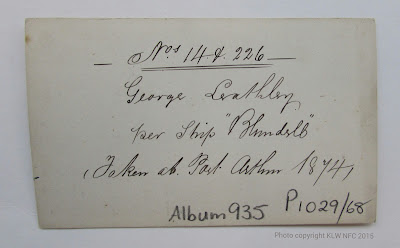 Nos 14 & 226
George Leathley
per Ship "Blundell"
Taken at Port Arthur 1874
Album 935 P1029/68
Photo copyright KLW NFC 2015